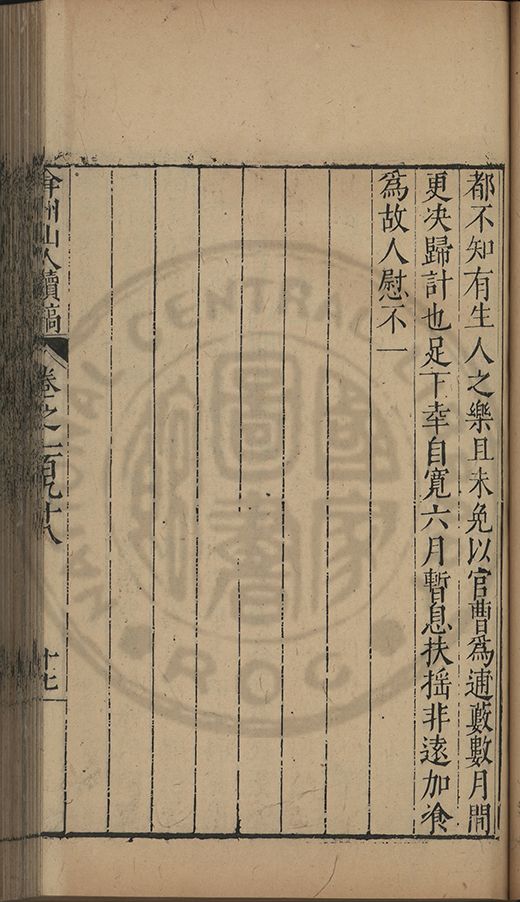 都不知有生人之樂且未免以官曹爲逋藪數月間
更决歸計也足下幸自寬六月暫息扶揺非遠加飡
爲故人慰不一
弇州山人續稿
卷之一百九十八
十七
國家圖書館
NATIONAL CENTRAL LIBRARY
R.O.C